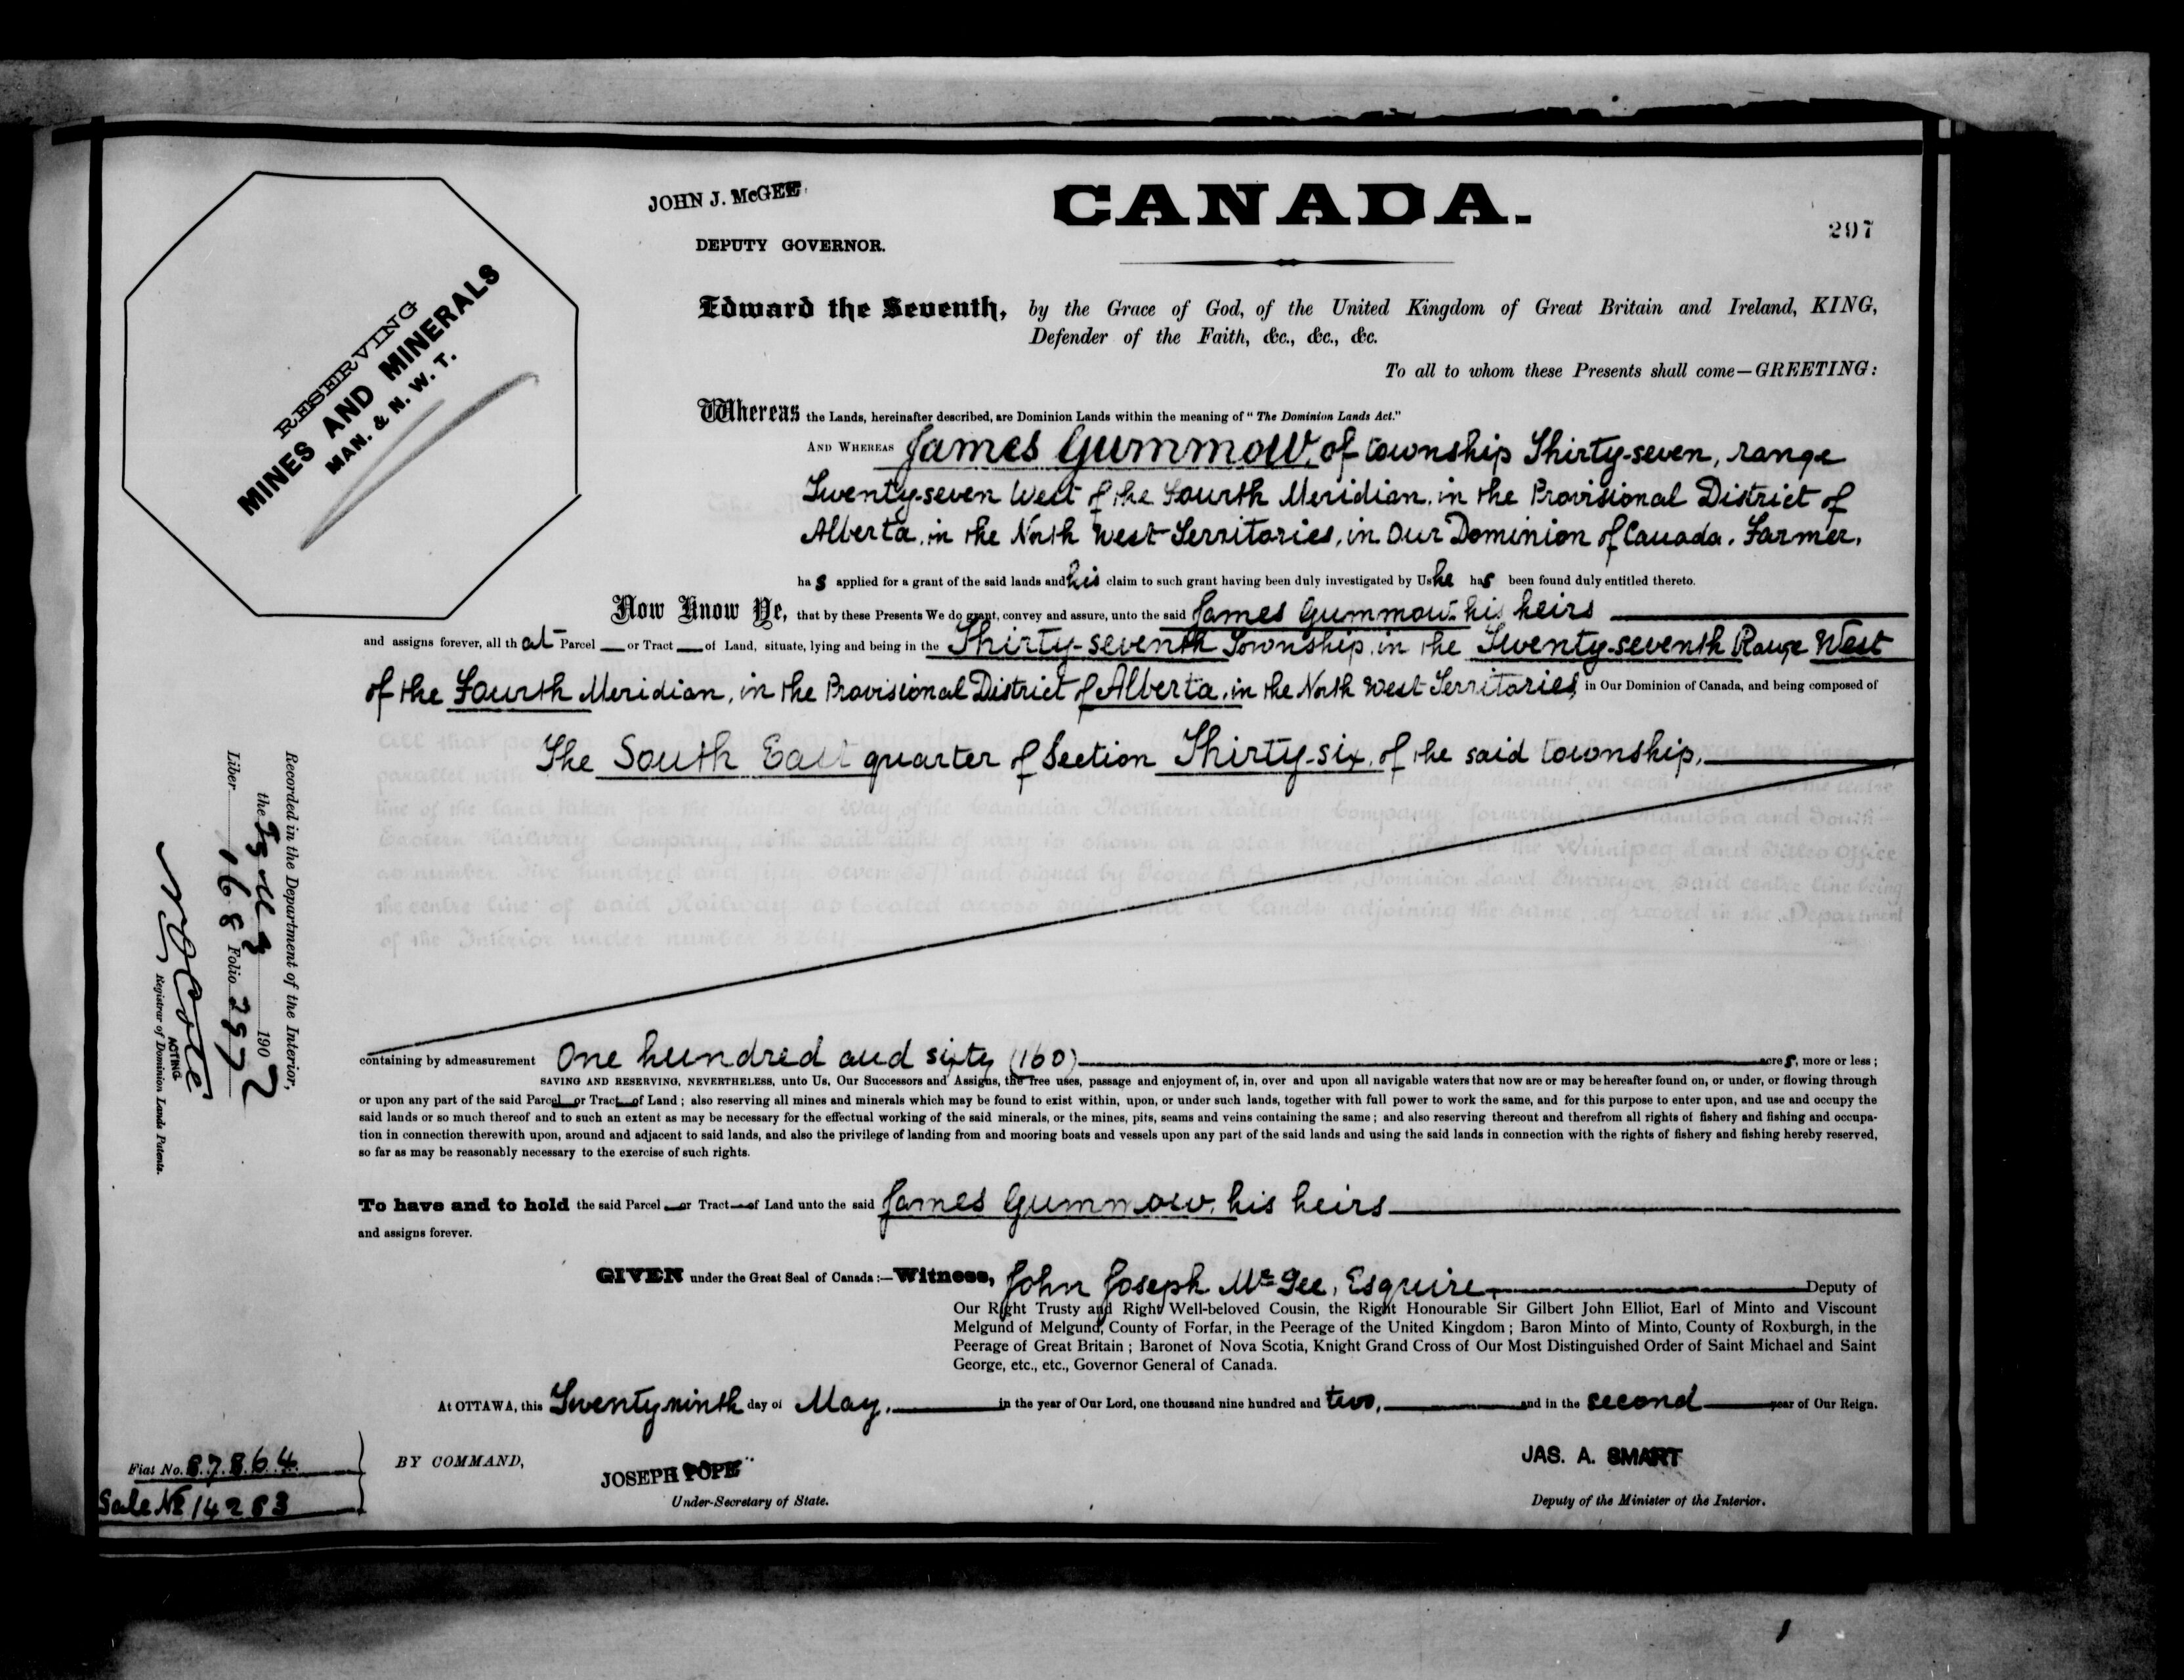 JOHN J. McGEE
DEPUTY GOVERNOR.
CANADA.
297
RESERVING
MINES AND MINERALS
MAN. & N. W. T.
Edward the Seventh, by the Grace of God, of the United Kingdom of Great Britain and Ireland, KING,
Defender of the Faith, &c., &c., &c.
To all to whom these Presents shall come—GREETING:
Whereas the Lands, hereinafter described, are Dominion Lands within the meaning of "The Dominion Lands Act."
AND WHEREAS James Gummow, of township Thirty-seven, range
Twenty-seven West of the Fourth Meridian, in the Provisional District of
Alberta, in the North West Territories, in Our Dominion of Canada, Farmer,
ha s applied for a grant of the said lands and his claim to such grant having been duly investigated by Us he has been found duly entitled thereto.
Now Know Ye, that by these Presents We do grant, convey and assure, unto the said James Gummow, his heirs
and assigns forever, all that Parcel or Tract of Land, situate, lying and being in the Thirty-seventh Township, in the Twenty-seventh Range West
of the Fourth Meridian, in the Provisional District of Alberta, in the North West Territories, in Our Dominion of Canada, and being composed of
The South East quarter of Section Thirty-six, of the said township,
containing by admeasurement One hundred and sixty (160) acres, more or less;
SAVING AND RESERVING, NEVERTHELESS, unto Us, Our Successors and Assigns, the free uses, passage and enjoyment of, in, over and upon all navigable waters that now are or may be hereafter found on, or under, or flowing through
or upon any part of the said Parcel or Tract of Land; also reserving all mines and minerals which may be found to exist within, upon, or under such lands, together with full power to work the same, and for this purpose to enter upon, and use and occupy the
said lands or so much thereof and to such an extent as may be necessary for the effectual working of the said minerals, or the mines, pits, seams and veins containing the same; and also reserving thereout and therefrom all rights of fishery and fishing and occupa-
tion in connection therewith upon, around and adjacent to said lands, and also the privilege of landing from and mooring boats and vessels upon any part of the said lands and using the said lands in connection with the rights of fishery and fishing hereby reserved,
so far as may be reasonably necessary to the exercise of such rights.
To have and to hold the said Parcel or Tract of Land unto the said James Gummow, his heirs
and assigns forever.
GIVEN under the Great Seal of Canada:—Witness, John Joseph McGee, Esquire, Deputy of
Our Right Trusty and Right Well-beloved Cousin, the Right Honourable Sir Gilbert John Elliot, Earl of Minto and Viscount
Melgund of Melgund, County of Forfar, in the Peerage of the United Kingdom; Baron Minto of Minto, County of Roxburgh, in the
Peerage of Great Britain; Baronet of Nova Scotia, Knight Grand Cross of Our Most Distinguished Order of Saint Michael and Saint
George, etc., etc., Governor General of Canada.
At OTTAWA, this Twenty ninth day of May, in the year of Our Lord, one thousand nine hundred and two, and in the second year of Our Reign.
BY COMMAND,
JOSEPH POPE
Under-Secretary of State.
JAS. A. SMART
Deputy of the Minister of the Interior.
Recorded in the Department of the Interior,
the 1902
Liber 168 Folio 297
ACTING
Registrar of Dominion Lands Patents.
Fiat No. 87864
Sale No 14283